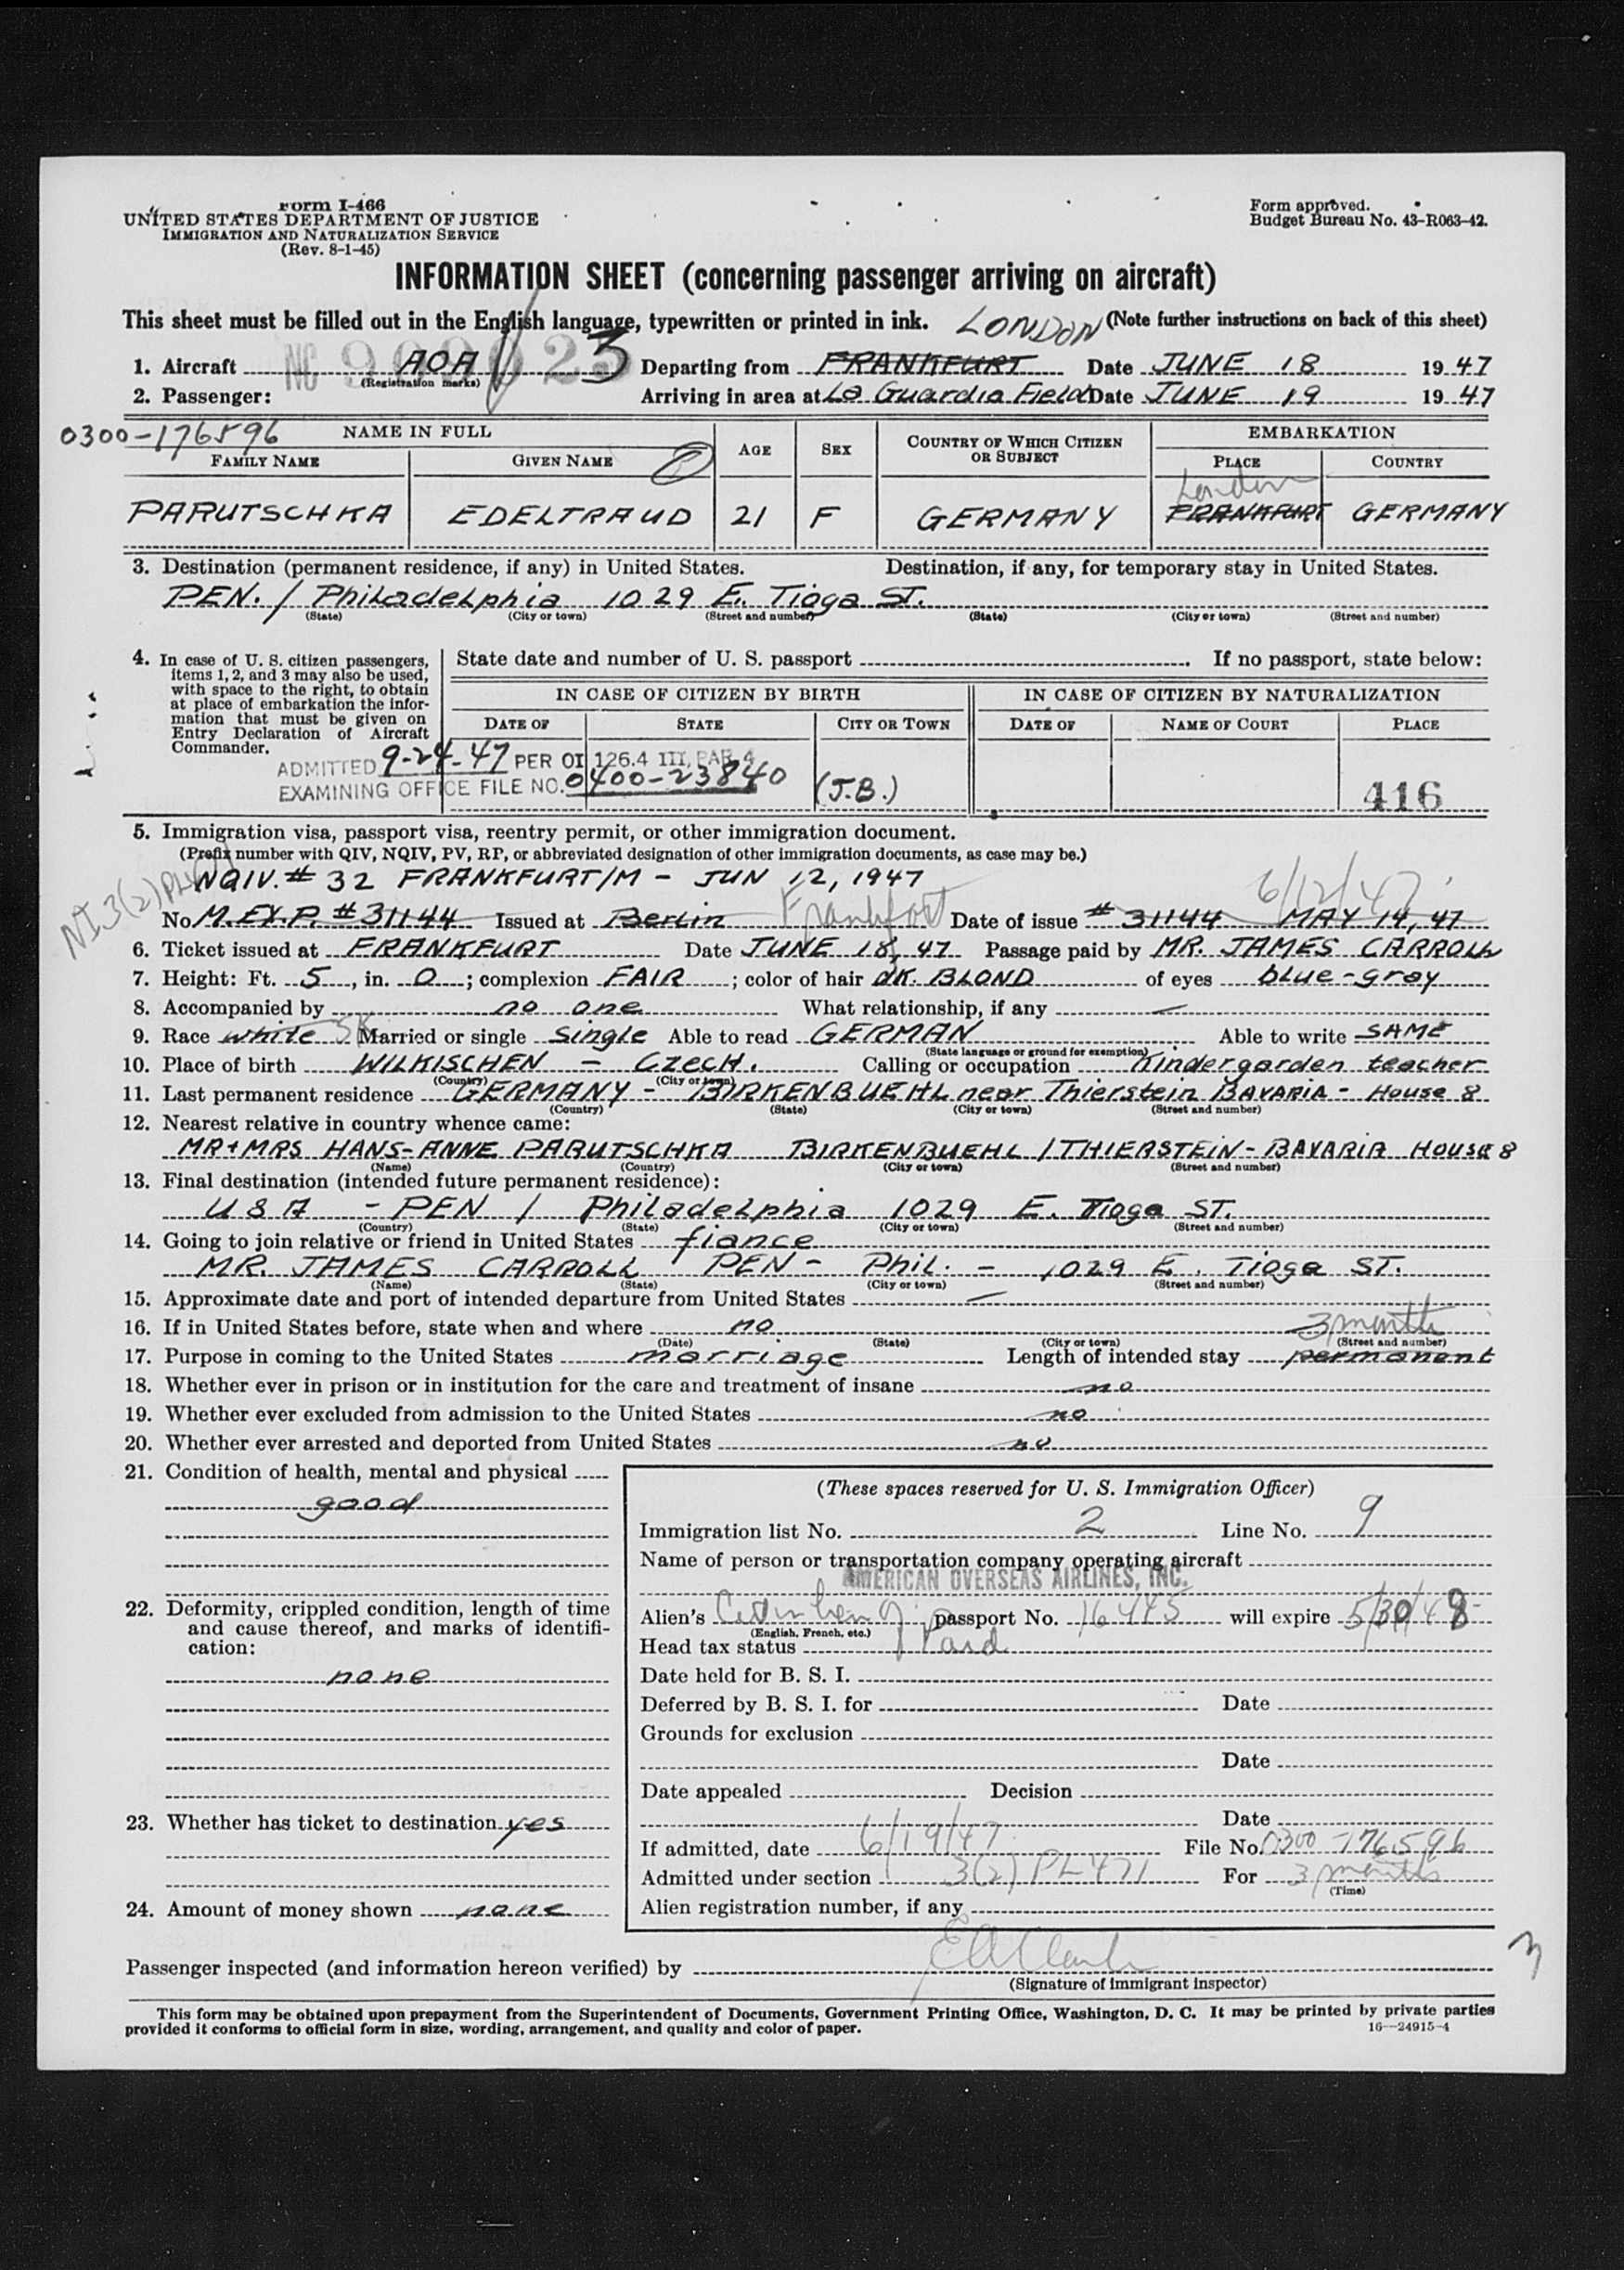 Form I-466
UNITED STATES DEPARTMENT OF JUSTICE
IMMIGRATION AND NATURALIZATION SERVICE
(Rev. 8-1-45)
Form approved.
Budget Bureau No. 43-R063-42.
INFORMATION SHEET (concerning passenger arriving on aircraft)
This sheet must be filled out in the English language, typewritten or printed in ink. LONDON (Note further instructions on back of this sheet)
1. Aircraft AOA 3 Departing from FRANKFURT Date JUNE 18 1947
(Registration marks)
2. Passenger: Arriving in area at La Guardia Field Date JUNE 19 1947
0300-176596 NAME IN FULL AGE SEX COUNTRY OF WHICH CITIZEN OR SUBJECT EMBARKATION
FAMILY NAME GIVEN NAME PLACE COUNTRY
London
PARUTSCHKA EDELTRAUD 21 F GERMANY FRANKFURT GERMANY
3. Destination (permanent residence, if any) in United States. Destination, if any, for temporary stay in United States.
PEN. / Philadelphia 1029 E. Tioga ST.
(State) (City or town) (Street and number) (State) (City or town) (Street and number)
4. In case of U. S. citizen passengers, items 1, 2, and 3 may also be used, with space to the right, to obtain at place of embarkation the information that must be given on Entry Declaration of Aircraft Commander.
State date and number of U. S. passport . If no passport, state below:
IN CASE OF CITIZEN BY BIRTH IN CASE OF CITIZEN BY NATURALIZATION
DATE OF STATE CITY OR TOWN DATE OF NAME OF COURT PLACE
ADMITTED 9-24-47 PER OI 126.4 III, PAR 4
EXAMINING OFFICE FILE NO. 0400-23840 (J.B.) 416
5. Immigration visa, passport visa, reentry permit, or other immigration document.
(Prefix number with QIV, NQIV, PV, RP, or abbreviated designation of other immigration documents, as case may be.)
NQIV. # 32 FRANKFURT/M - JUN 12, 1947 6/12/47
No M.EX.P. # 31144 Issued at Berlin Frankfort Date of issue # 31144 MAY 14, 47
6. Ticket issued at FRANKFURT Date JUNE 18, 47 Passage paid by MR. JAMES CARROLL
7. Height: Ft. 5, in. 0; complexion FAIR; color of hair DK. BLOND of eyes blue-gray
8. Accompanied by no one What relationship, if any —
9. Race white Married or single single Able to read GERMAN Able to write SAME
(State language or ground for exemption)
10. Place of birth WILKISCHEN - CZECH. Calling or occupation Kindergarden teacher
(Country) (City or town)
11. Last permanent residence GERMANY - BIRKENBUEHL near Thierstein BAVARIA - House 8
(Country) (State) (City or town) (Street and number)
12. Nearest relative in country whence came:
MR + MRS HANS-ANNE PARUTSCHKA BIRKENBUEHL / THIERSTEIN - BAVARIA HOUSE 8
(Name) (Country) (City or town) (Street and number)
13. Final destination (intended future permanent residence):
USA - PEN / Philadelphia 1029 E. Tioga ST.
(Country) (State) (City or town) (Street and number)
14. Going to join relative or friend in United States fiance
MR. JAMES CARROLL PEN - Phil. - 1029 E. Tioga ST.
(Name) (State) (City or town) (Street and number)
15. Approximate date and port of intended departure from United States —
16. If in United States before, state when and where no
(Date) (State) (City or town) (Street and number)
3 months
17. Purpose in coming to the United States marriage Length of intended stay permanent
18. Whether ever in prison or in institution for the care and treatment of insane no
19. Whether ever excluded from admission to the United States no
20. Whether ever arrested and deported from United States no
21. Condition of health, mental and physical
good
22. Deformity, crippled condition, length of time and cause thereof, and marks of identification:
none
23. Whether has ticket to destination yes
24. Amount of money shown none
(These spaces reserved for U. S. Immigration Officer)
Immigration list No. 2 Line No. 9
Name of person or transportation company operating aircraft
AMERICAN OVERSEAS AIRLINES, INC.
Alien's passport No. 16445 will expire 5/30/48
(English, French, etc.)
Head tax status Paid
Date held for B. S. I.
Deferred by B. S. I. for Date
Grounds for exclusion
Date
Date appealed Decision
Date
If admitted, date 6/19/47 File No. 0300-176596
Admitted under section 3(2) PL 471 For 3 months
(Time)
Alien registration number, if any
3
Passenger inspected (and information hereon verified) by
(Signature of immigrant inspector)
This form may be obtained upon prepayment from the Superintendent of Documents, Government Printing Office, Washington, D. C. It may be printed by private parties
provided it conforms to official form in size, wording, arrangement, and quality and color of paper. 16—24915-4